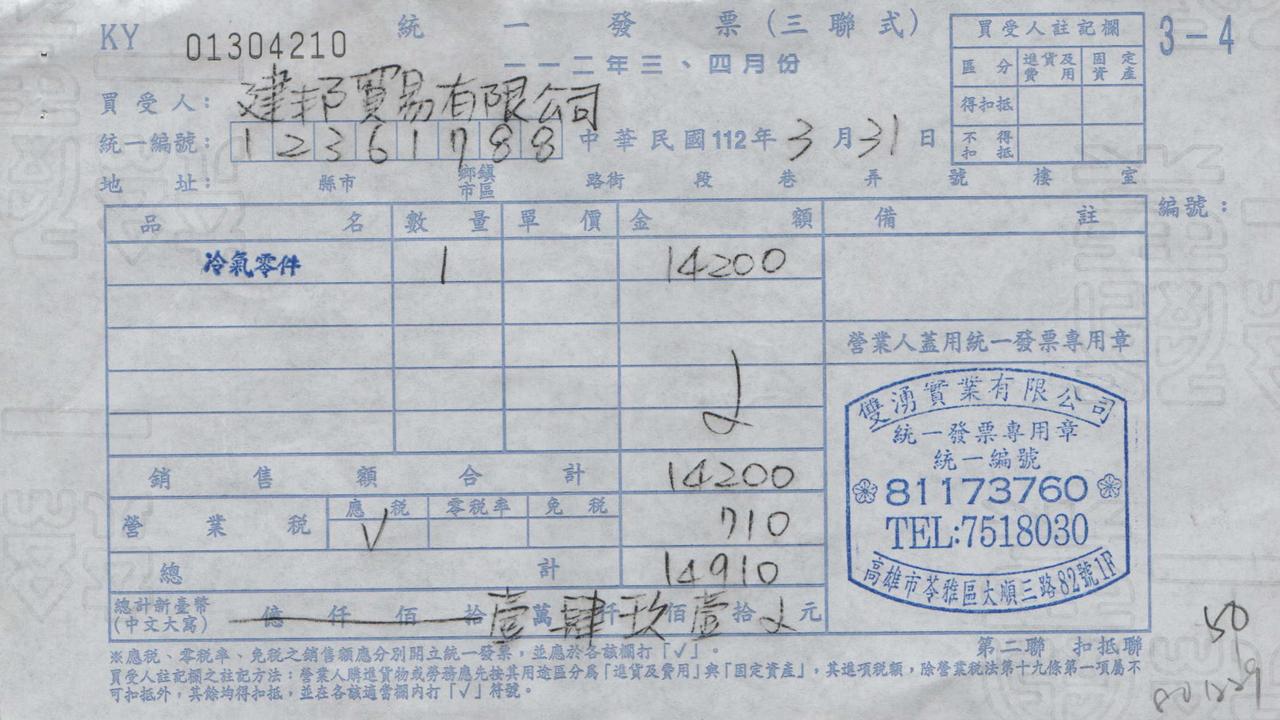 KY 01304210 統一發票(三聯式) 3-4
一一二年三、四月份
買受人: 建邦貿易有限公司
統一編號: 12361788 中華民國112年3月31日
地址: 縣市 鄉鎮市區 路街 段 巷 弄 號 樓 室
買受人註記欄
區分 進貨及費用 固定資產
得扣抵
不得扣抵
編號:
品名 數量 單價 金額 備註
冷氣零件 1 14200
營業人蓋用統一發票專用章
銷售額合計 14200
營業稅 應稅 零稅率 免稅
V 710
總計 14910
總計新臺幣
(中文大寫) 億仟佰拾壹萬肆仟玖佰壹拾元
雙湧實業有限公司
統一發票專用章
統一編號
81173760
TEL:7518030
高雄市苓雅區大順三路82號1F
第二聯 扣抵聯
※應稅、零稅率、免稅之銷售額應分別開立統一發票,並應於各該欄打「√」。
買受人註記欄之註記方法:營業人購進貨物或勞務應先按其用途區分為「進貨及費用」與「固定資產」,其進項稅額,除營業稅法第十九條第一項屬不
可扣抵外,其餘均得扣抵,並在各該適當欄內打「√」符號。
50